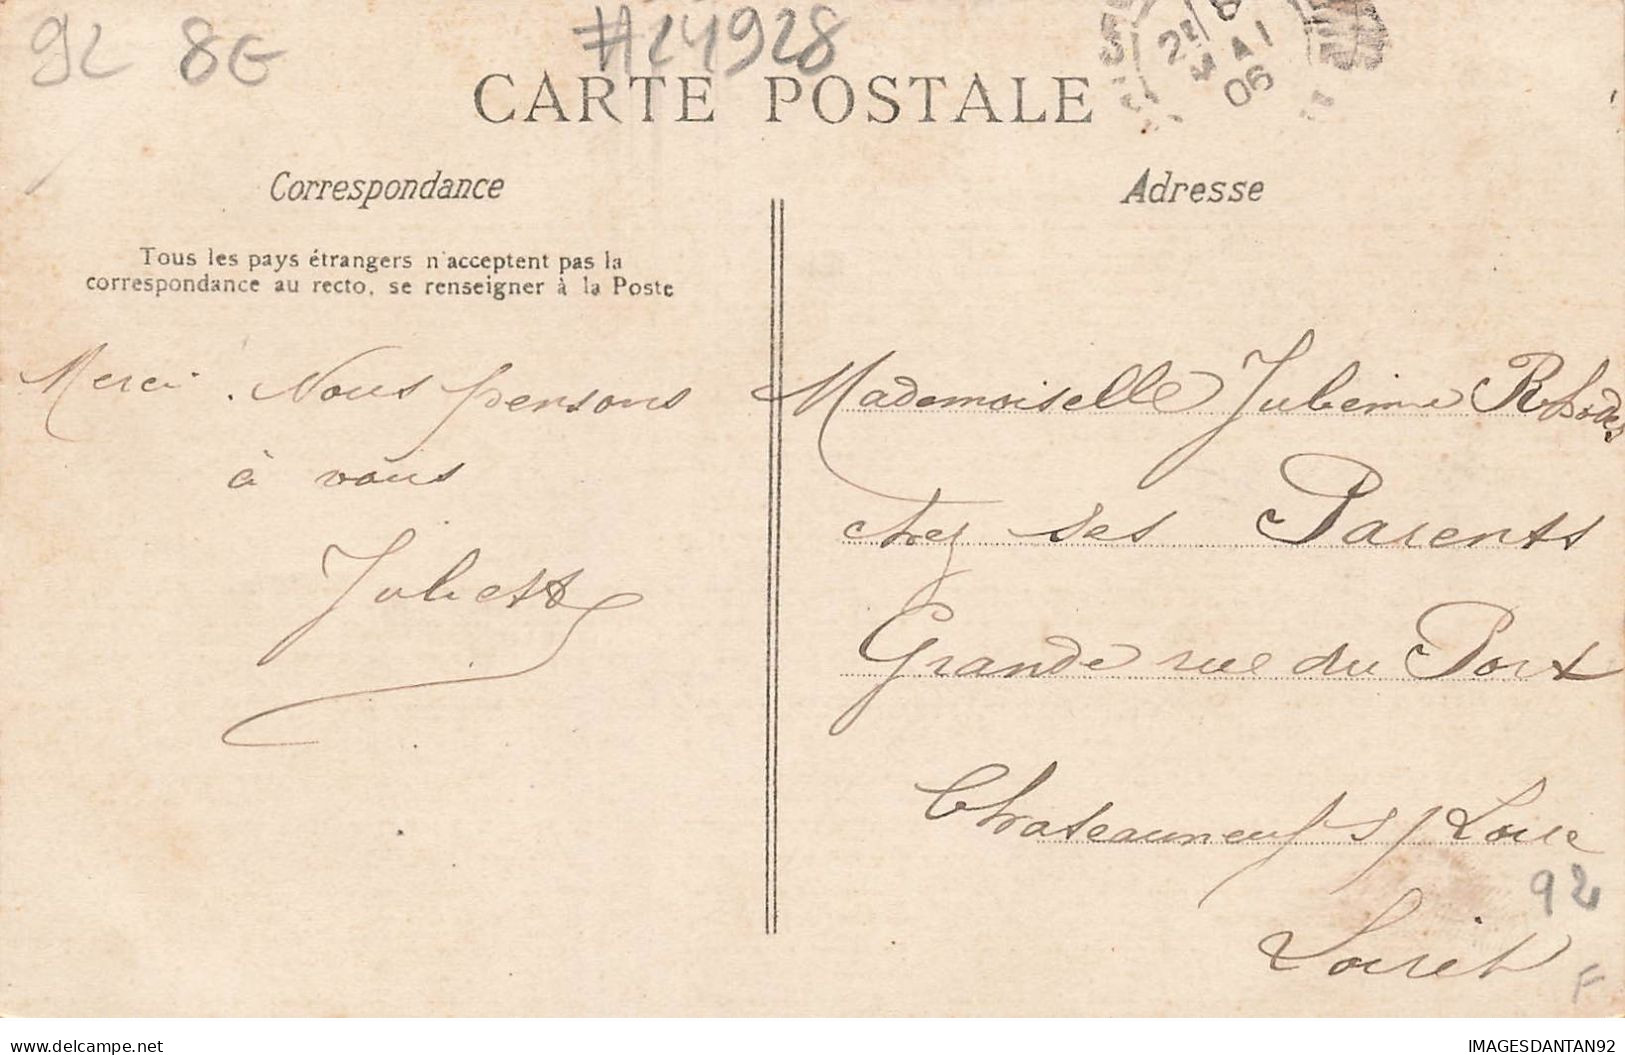 92 8G #24928
CARTE POSTALE
8
MAI
06
Correspondance
Tous les pays étrangers n'acceptent pas la
correspondance au recto, se renseigner à la Poste
Merci. Nous pensons
à vous
Juliette
Adresse
Mademoiselle Julienne Rhodes
chez ses Parents
Grande rue du Port
Chateauneuf s/ Loire
Loiret
92
F
www.delcampe.net
IMAGESDANTAN92